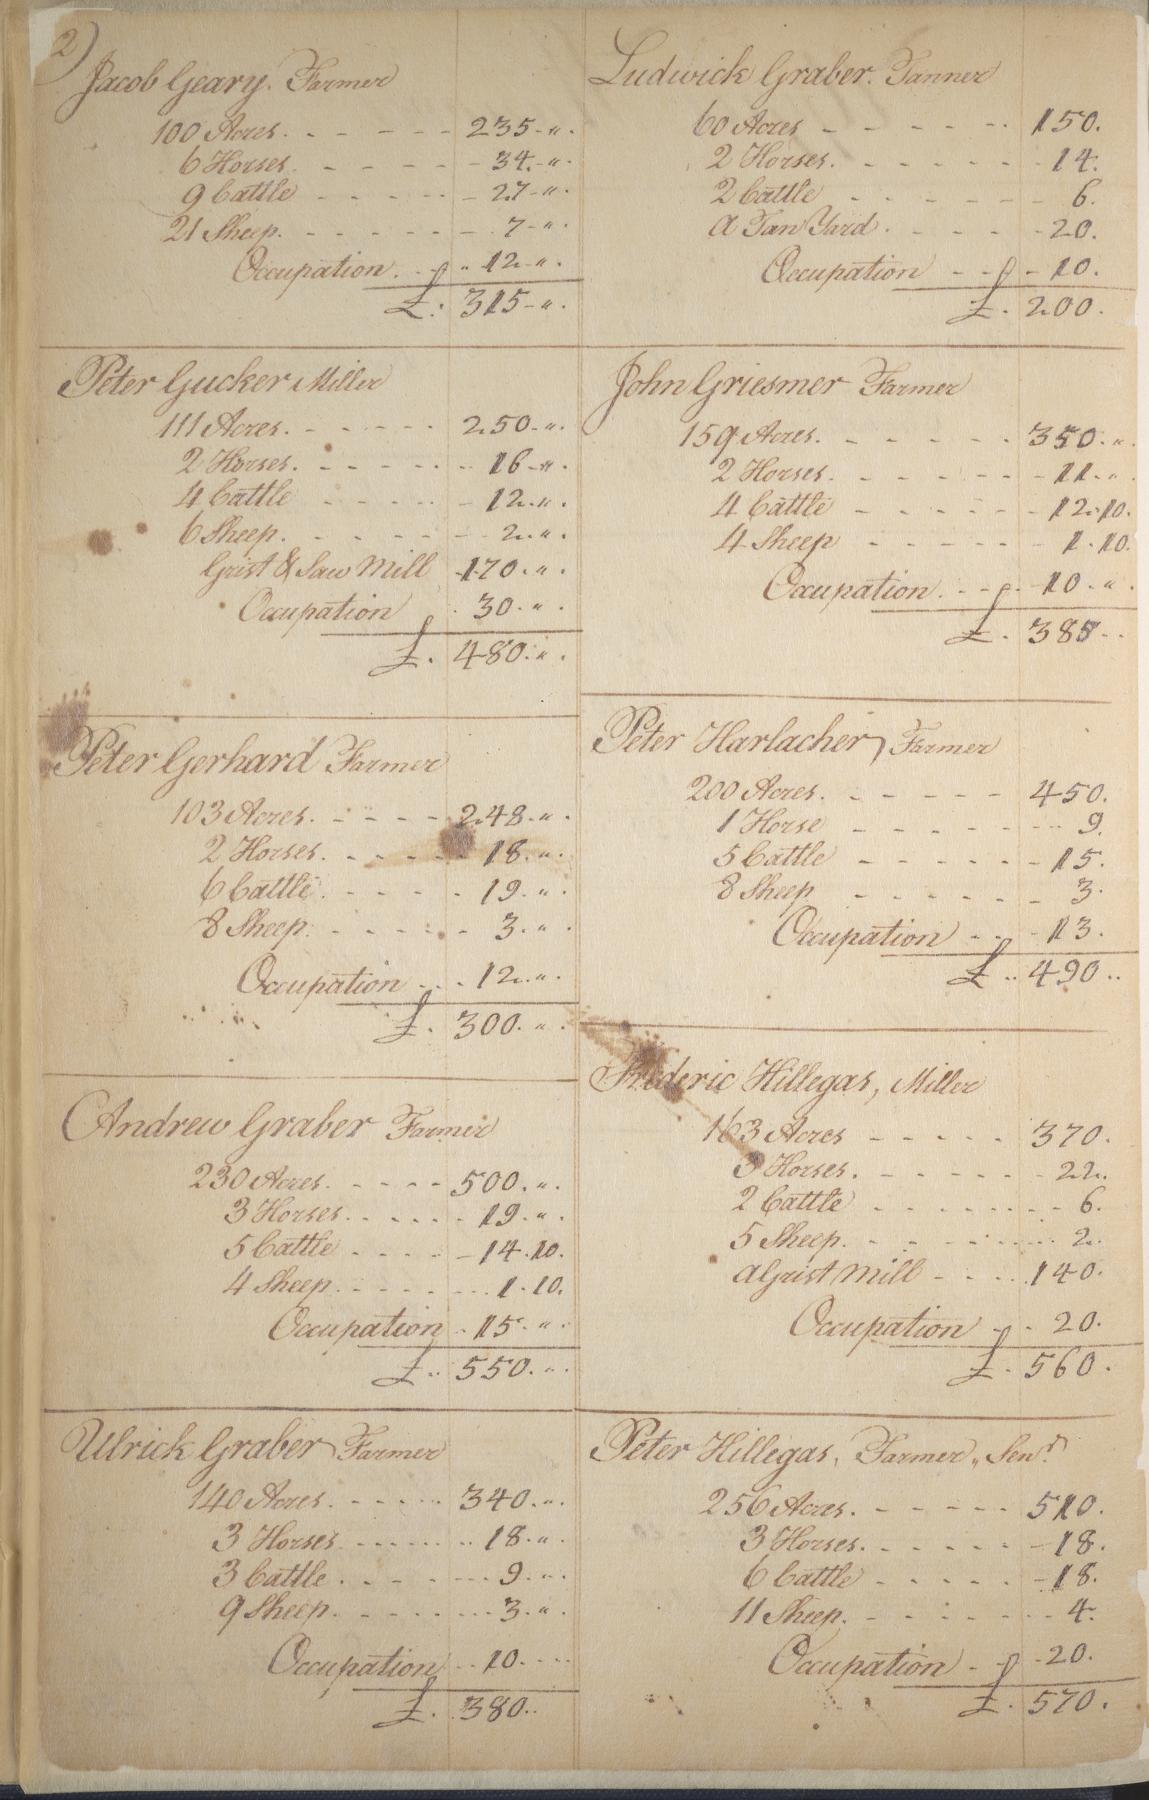 2)
Jacob Geary. Farmer
100 Acres. - - - - - 235 - " .
6 Horses. - - - - - 34. - " .
9 Cattle - - - - - 27 - " .
21 Sheep. - - - - - 7 - " .
Occupation. - - " 12 - " .
£. 315 - " .
Peter Gucker Miller
111 Acres. - - - - - 250. " .
2 Horses. - - - - - 16 - " .
4 Cattle - - - - - 12. " .
6 Sheep. - - - - - 2. " .
Grist & Saw Mill 170. " .
Occupation 30. " .
£. 480. " .
Peter Gerhard Farmer
103 Acres. - - - - 248. " .
2 Horses. - - - - - 18. " .
6 Cattle. - - - - - 19. " .
8 Sheep. - - - - - 3. " .
Occupation - - 12. " .
£. 300. " .
Andrew Graber Farmer
230 Acres. - - - - 500. " .
3 Horses. - - - - - 19. " .
5 Cattle - - - - - 14. 10.
4 Sheep. - - - - - 1. 10.
Occupation - 15. " .
£. 550. " .
Ulrick Graber Farmer
140 Acres. - - - - - 340. " .
3 Horses - - - - - 18. " .
3 Cattle. - - - - - 9. " .
9 Sheep. - - - - - 3. " .
Occupation - 10. - -
£. 380. .
Ludwick Graber. Tanner
60 Acres - - - - - 150.
2 Horses. - - - - - 14.
2 Cattle - - - - - 6.
A Tan Yard. - - - - 20.
Occupation - - - 10.
£. 200.
John Griesmer Farmer
159 Acres. - - - - - 350. "
2 Horses. - - - - - 11. "
4 Cattle - - - - - 12. 10.
4 Sheep - - - - - 1. 10.
Occupation. - - - 10. " .
£. 385. .
Peter Harlacher, Farmer
200 Acres. - - - - - 450.
1 Horse - - - - - 9.
5 Cattle - - - - - 15.
8 Sheep - - - - - 3.
Occupation - - - 13.
£. 490. .
Frederic Hillegas, Miller
163 Acres - - - - - 370.
3 Horses. - - - - - 22.
2 Cattle - - - - - 6.
5 Sheep. - - - - - 2.
A Grist Mill - - - . 140.
Occupation - - 20.
£. 560.
Peter Hillegas, Farmer, Senr.
256 Acres. - - - - - 510.
3 Horses. - - - - - 18.
6 Cattle - - - - - 18.
11 Sheep. - - - - - 4.
Occupation - - - 20.
£. 570.